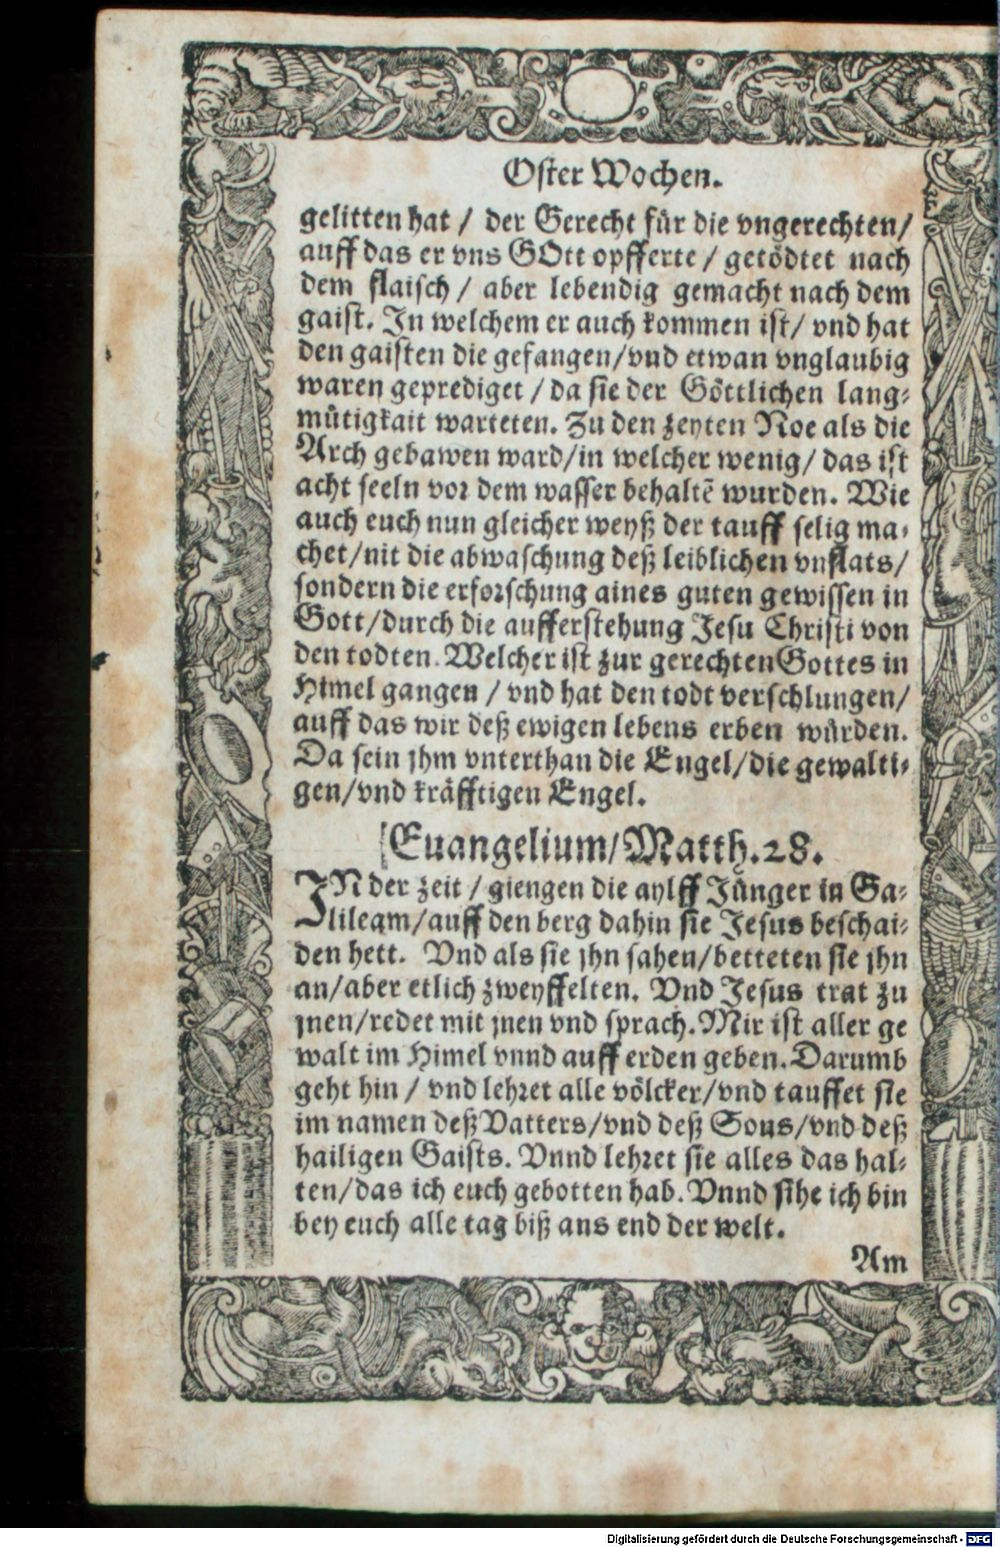 Oster Wochen.
gelitten hat / der Gerecht für die vngerechten/
auff das er vns GOtt opfferte / getödtet nach
dem flaisch / aber lebendig gemacht nach dem
gaist. In welchem er auch kommen ist/ vnd hat
den gaisten die gefangen/vnd etwan vnglaubig
waren geprediget / da sie der Göttlichen lang-
mütigkait warteten. Zu den zeyten Noe als die
Arch gebawen ward/in welcher wenig/ das ist
acht seeln vor dem wasser behaltẽ wurden. Wie
auch euch nun gleicher weyß der tauff selig ma-
chet/nit die abwaschung deß leiblichen vnflats/
sondern die erforschung aines guten gewissen in
Gott/durch die aufferstehung Jesu Christi von
den todten. Welcher ist zur gerechten Gottes in
Himel gangen / vnd hat den todt verschlungen/
auff das wir deß ewigen lebens erben würden.
Da sein jhm vnterthan die Engel/die gewalti-
gen/vnd kräfftigen Engel.
Euangelium/Matth.28.
IN der zeit / giengen die aylff Jünger in Ga-
lileam/auff den berg dahin sie Jesus beschai-
den hett. Vnd als sie jhn sahen/betteten sie jhn
an/aber etlich zweyffelten. Vnd Jesus trat zu
jnen/redet mit jnen vnd sprach. Mir ist aller ge
walt im Himel vnnd auff erden geben. Darumb
geht hin / vnd lehret alle völcker/vnd tauffet sie
im namen deß Vatters/vnd deß Sons/vnd deß
hailigen Gaists. Vnnd lehret sie alles das hal-
ten/das ich euch gebotten hab. Vnnd sihe ich bin
bey euch alle tag biß ans end der welt.
Am
Digitalisierung gefördert durch die Deutsche Forschungsgemeinschaft - DFG